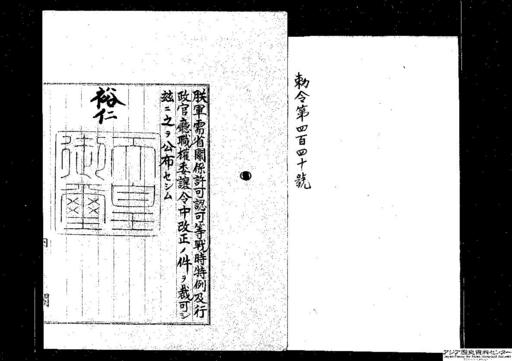 勅令第四百四十號
朕軍需省關係許可認可等戰時特例及行
政官廳職權委讓令中改正ノ件ヲ裁可シ
玆ニ之ヲ公布セシム
裕仁
天皇御璽
內閣
アジア歴史資料センター